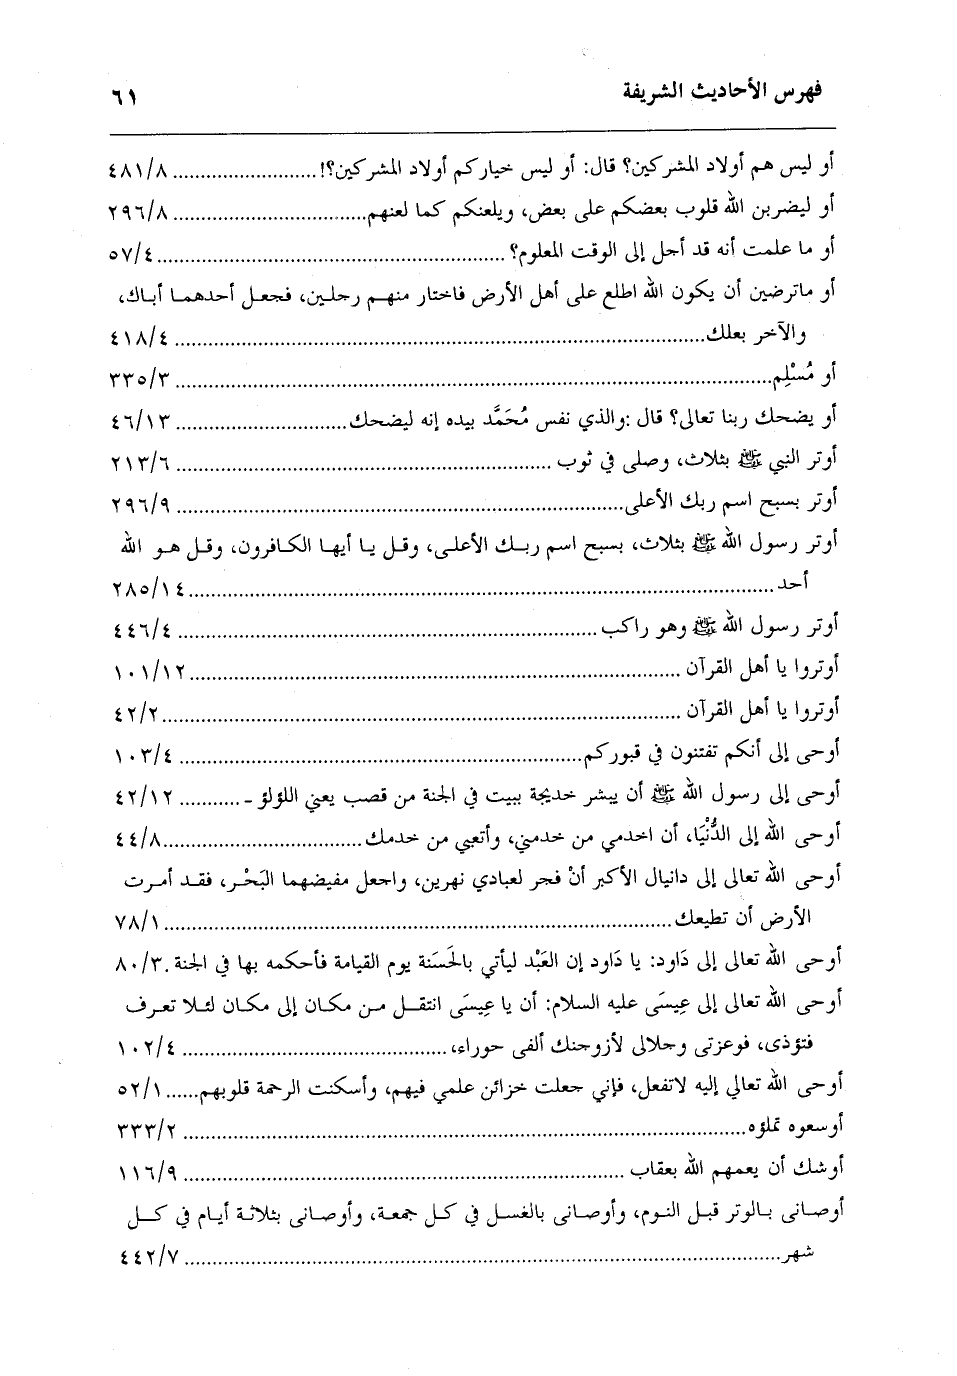 فهرس الأحاديث الشريفة ٦١
أو ليس هم أولاد المشركين؟ قال: أو ليس خياركم أولاد المشركين؟! ٤٨١/٨
أو ليضربن الله قلوب بعضكم على بعض، ويلعنكم كما لعنهم ٢٩٦/٨
أو ما علمت أنه قد أحل إلى الوقت المعلوم؟ ٥٧/٤
أو ماترضين أن يكون الله اطلع على أهل الأرض فاختار منهم رجلين، فجعل أحدهما أباك،
والآخر بعلك ٤١٨/٤
أو مُسْلِم ٣٣٥/٣
أو يضحك ربنا تعالى؟ قال :والذي نفس مُحَمَّد بيده إنه ليضحك ٤٦/١٣
أوتر النبي ﷺ بثلاث، وصلى في ثوب ٢١٣/٦
أوتر بسبح اسم ربك الأعلى ٢٩٦/٩
أوتر رسول الله ﷺ بثلاث، بسبح اسم ربك الأعلى، وقل يا أيها الكافرون، وقل هو الله
أحد ٢٨٥/١٤
أوتر رسول الله ﷺ وهو راكب ٤٤٦/٤
أوتروا يا أهل القرآن ١٠١/١٢
أوتروا يا أهل القرآن ٤٢/٢
أوحى إلى أنكم تفتنون في قبوركم ١٠٣/٤
أوحى إلى رسول الله ﷺ أن يبشر خديجة ببيت في الجنة من قصب يعني اللؤلؤ - ٤٢/١٢
أوحى الله إلى الدُّنْيَا، أن اخدمي من خدمني، وأتعبي من خدمك ٤٤/٨
أوحى الله تعالى إلى دانيال الأكبر أنْ فجر لعبادي نهرين، واجعل مفيضهما البَحْر، فقد أمرت
الأرض أن تطيعك ٧٨/١
أوحى الله تعالى إلى دَاود: يا دَاود إن العَبْد ليأتي بالحَسَنة يوم القيامة فأحكمه بها في الجنة ٨٠/٣
أوحى الله تعالى إلى عِيسَى عليه السلام: أن يا عِيسَى انتقل من مكان إلى مكان لئلا تعرف
فتؤذى، فوعزتى وحلالى لأزوجنك ألفى حوراء، ١٠٢/٤
أوحى الله تعالي إليه لاتفعل، فإني جعلت خزائن علمي فيهم، وأسكنت الرحمة قلوبهم ٥٢/١
أوسعوه تملؤه ٣٣٣/٢
أوشك أن يعمهم الله بعقاب ١١٦/٩
أوصانى بالوتر قبل النوم، وأوصانى بالغسل في كل جمعة، وأوصانى بثلاثة أيام في كل
شهر ٤٤٢/٧